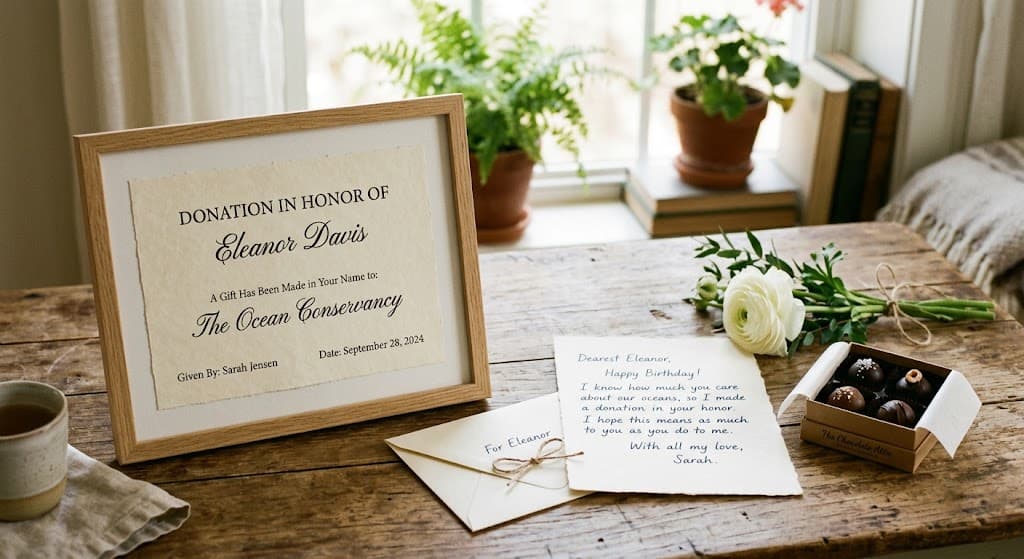 DONATION IN HONOR OF
Eleanor Davis
A Gift Has Been Made in Your Name to:
The Ocean Conservancy
Given By: Sarah Jensen
Date: September 28, 2024
For Eleanor
Dearest Eleanor,
Happy Birthday!
I know how much you care
about our oceans, so I made
a donation in your honor.
I hope this means as much
to you as you do to me.
With all my love,
Sarah.
The Chocolate